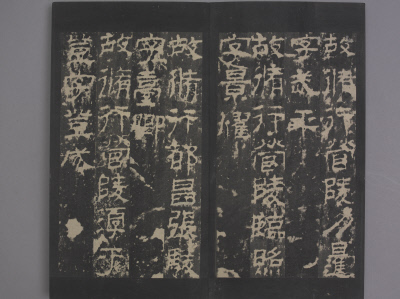 故脩行營陵
字武平
故脩行營陵臨照
字景燿
故脩行都昌張駿
字臺卿
故脩行營陵淳于
登字登成